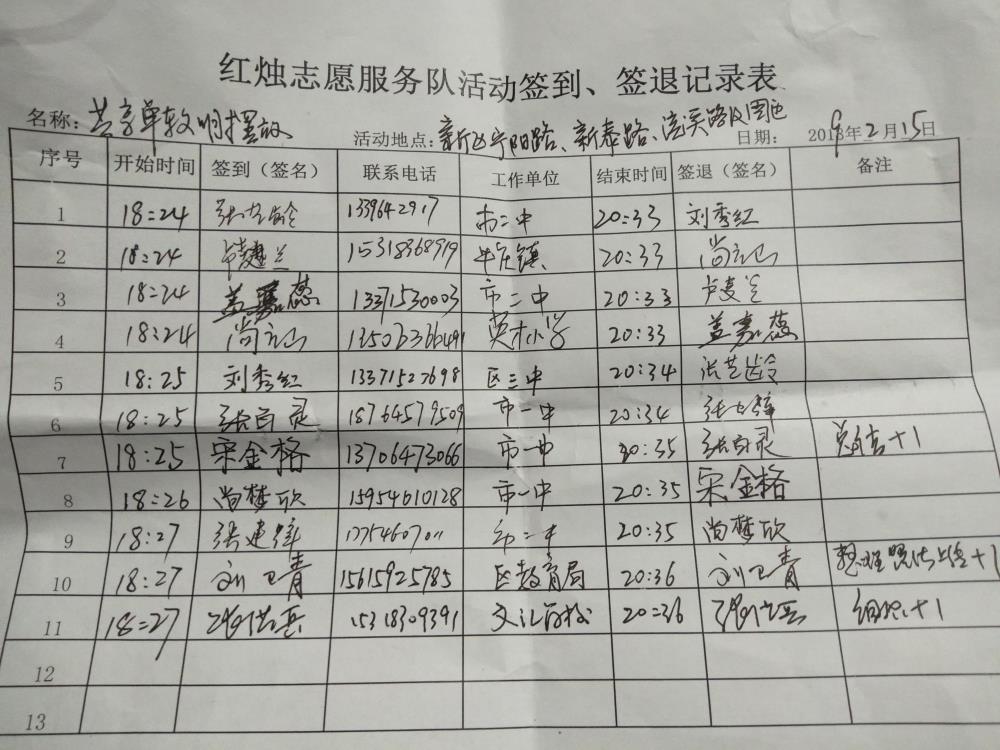 红烛志愿服务队活动签到、签退记录表
名称：共享单车文明摆放 活动地点：宁阳路、新泰路、 日期： 2019年2月15日
序号 开始时间 签到（签名） 联系电话 工作单位 结束时间 签退（签名） 备注
1 18:24 张芝龄 1339642917 市二中 20:33 刘秀红
2 18:24 15318368919 牛庄镇 20:33 尚立山
3 18:24 盖嘉蕊 13371530003 市二中 20:33 卢建兰
4 18:24 尚立山 英才小学 20:33 盖嘉蕊
5 18:25 刘秀红 13371527698 区三中 20:34 张芝龄
6 18:25 张百灵 18764579509 市一中 20:34
7 18:25 宋金格 13706473066 市一中 20:35 张百灵
8 18:26 尚梦欣 15954610128 市一中 20:35 宋金格
9 18:27 张建辉 市二中 20:35 尚梦欣
10 18:27 刘卫青 15615925785 区教育局 20:36 刘卫青
11 18:27 15318309391 20:36 组织+1
12
13